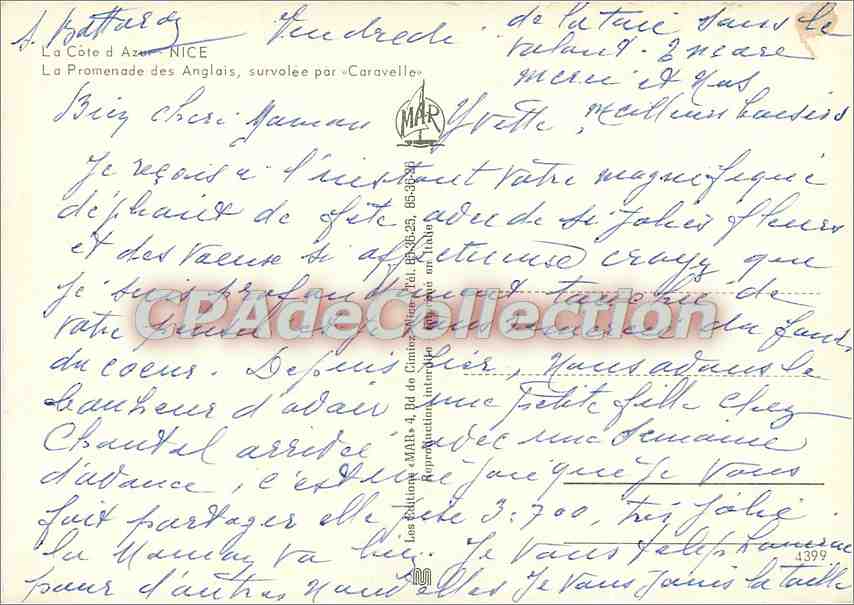 S. Battardy Vendredi
La Côte d'Azur - NICE
La Promenade des Anglais, survolée par «Caravelle»
MAR
Bien chère Maman Yvette,
Je reçois à l'instant votre magnifique
éléphant de fête avec de si jolies fleurs
et des vœux si affectueux croyez que
je suis profondément touchée de
votre pensée et je vous remercie du fond
du coeur. Depuis hier, nous avons le
bonheur d'avoir une petite fille chez
Chantal arrivée avec une semaine
d'avance, c'est une joie que je vous
fait partager elle pèse 3:700, très jolie
la Maman va bien. Je vous téléphonerai
pour d'autres nouvelles je vous joins la taille
de la taie sans le
volant. Encore
merci et nos
meilleurs baisers
Les Editions «MAR» 4, Bd de Cimiez, Nice - Tél. 85-36-25, 85-36-26
Reproductions interdite - Fabriqué en Italie
CPAdeCollection
4399